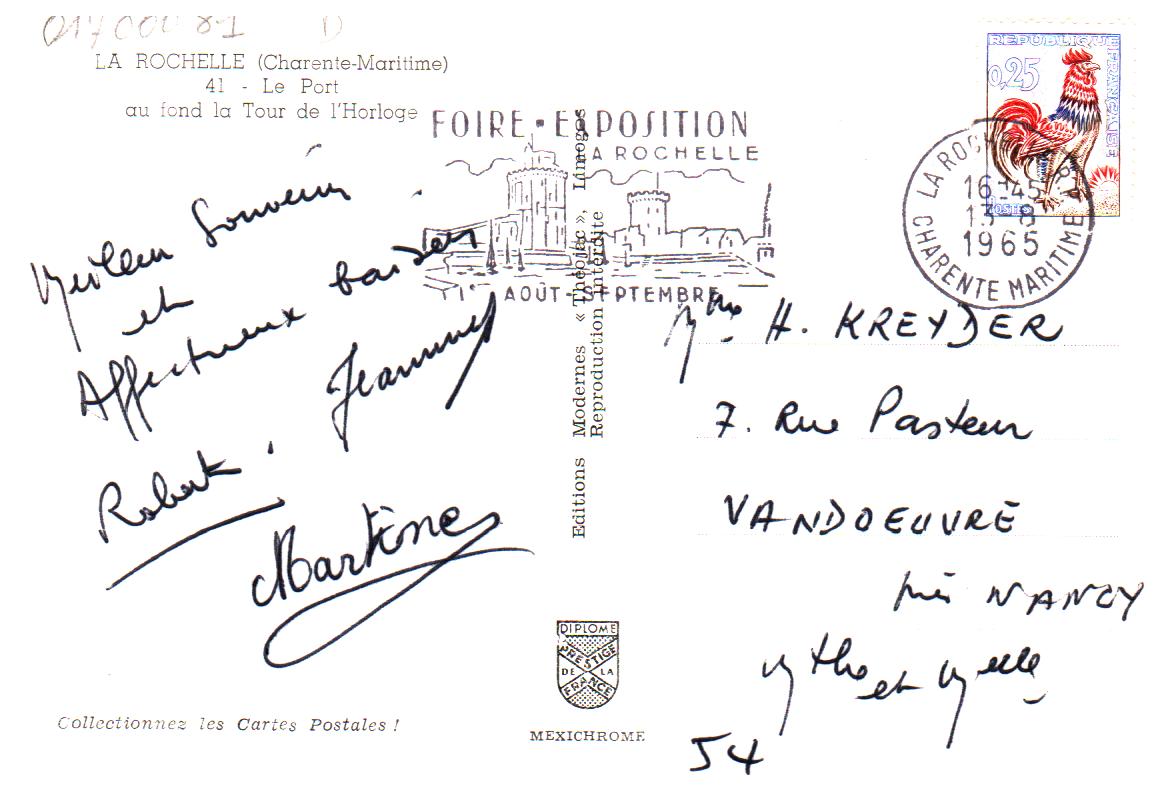 01700081 D
LA ROCHELLE (Charente-Maritime)
41 - Le Port
au fond la Tour de l'Horloge
FOIRE-EXPOSITION
LA ROCHELLE
AOÛT-SEPTEMBRE
REPUBLIQUE FRANÇAISE
0,25
POSTES
LA ROCHELLE
16-45
13-8
1965
CHARENTE MARITIME
Meilleur Souvenir
et
Affectueux baisers
Robert. Jeanne
Martine
Editions Modernes « Théojac », Limoges
Reproduction Interdite
Mme H. KREYDER
7. Rue Pasteur
VANDOEUVRE
près NANCY
Mthe et Melle
54
DIPLOME
PRESTIGE
DE LA
FRANCE
MEXICHROME
Collectionnez les Cartes Postales !